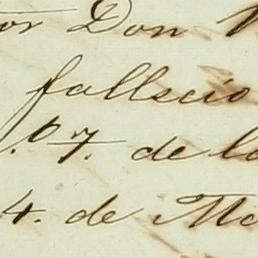 or Don
fallecio
.º 7. de la
4. de Ma